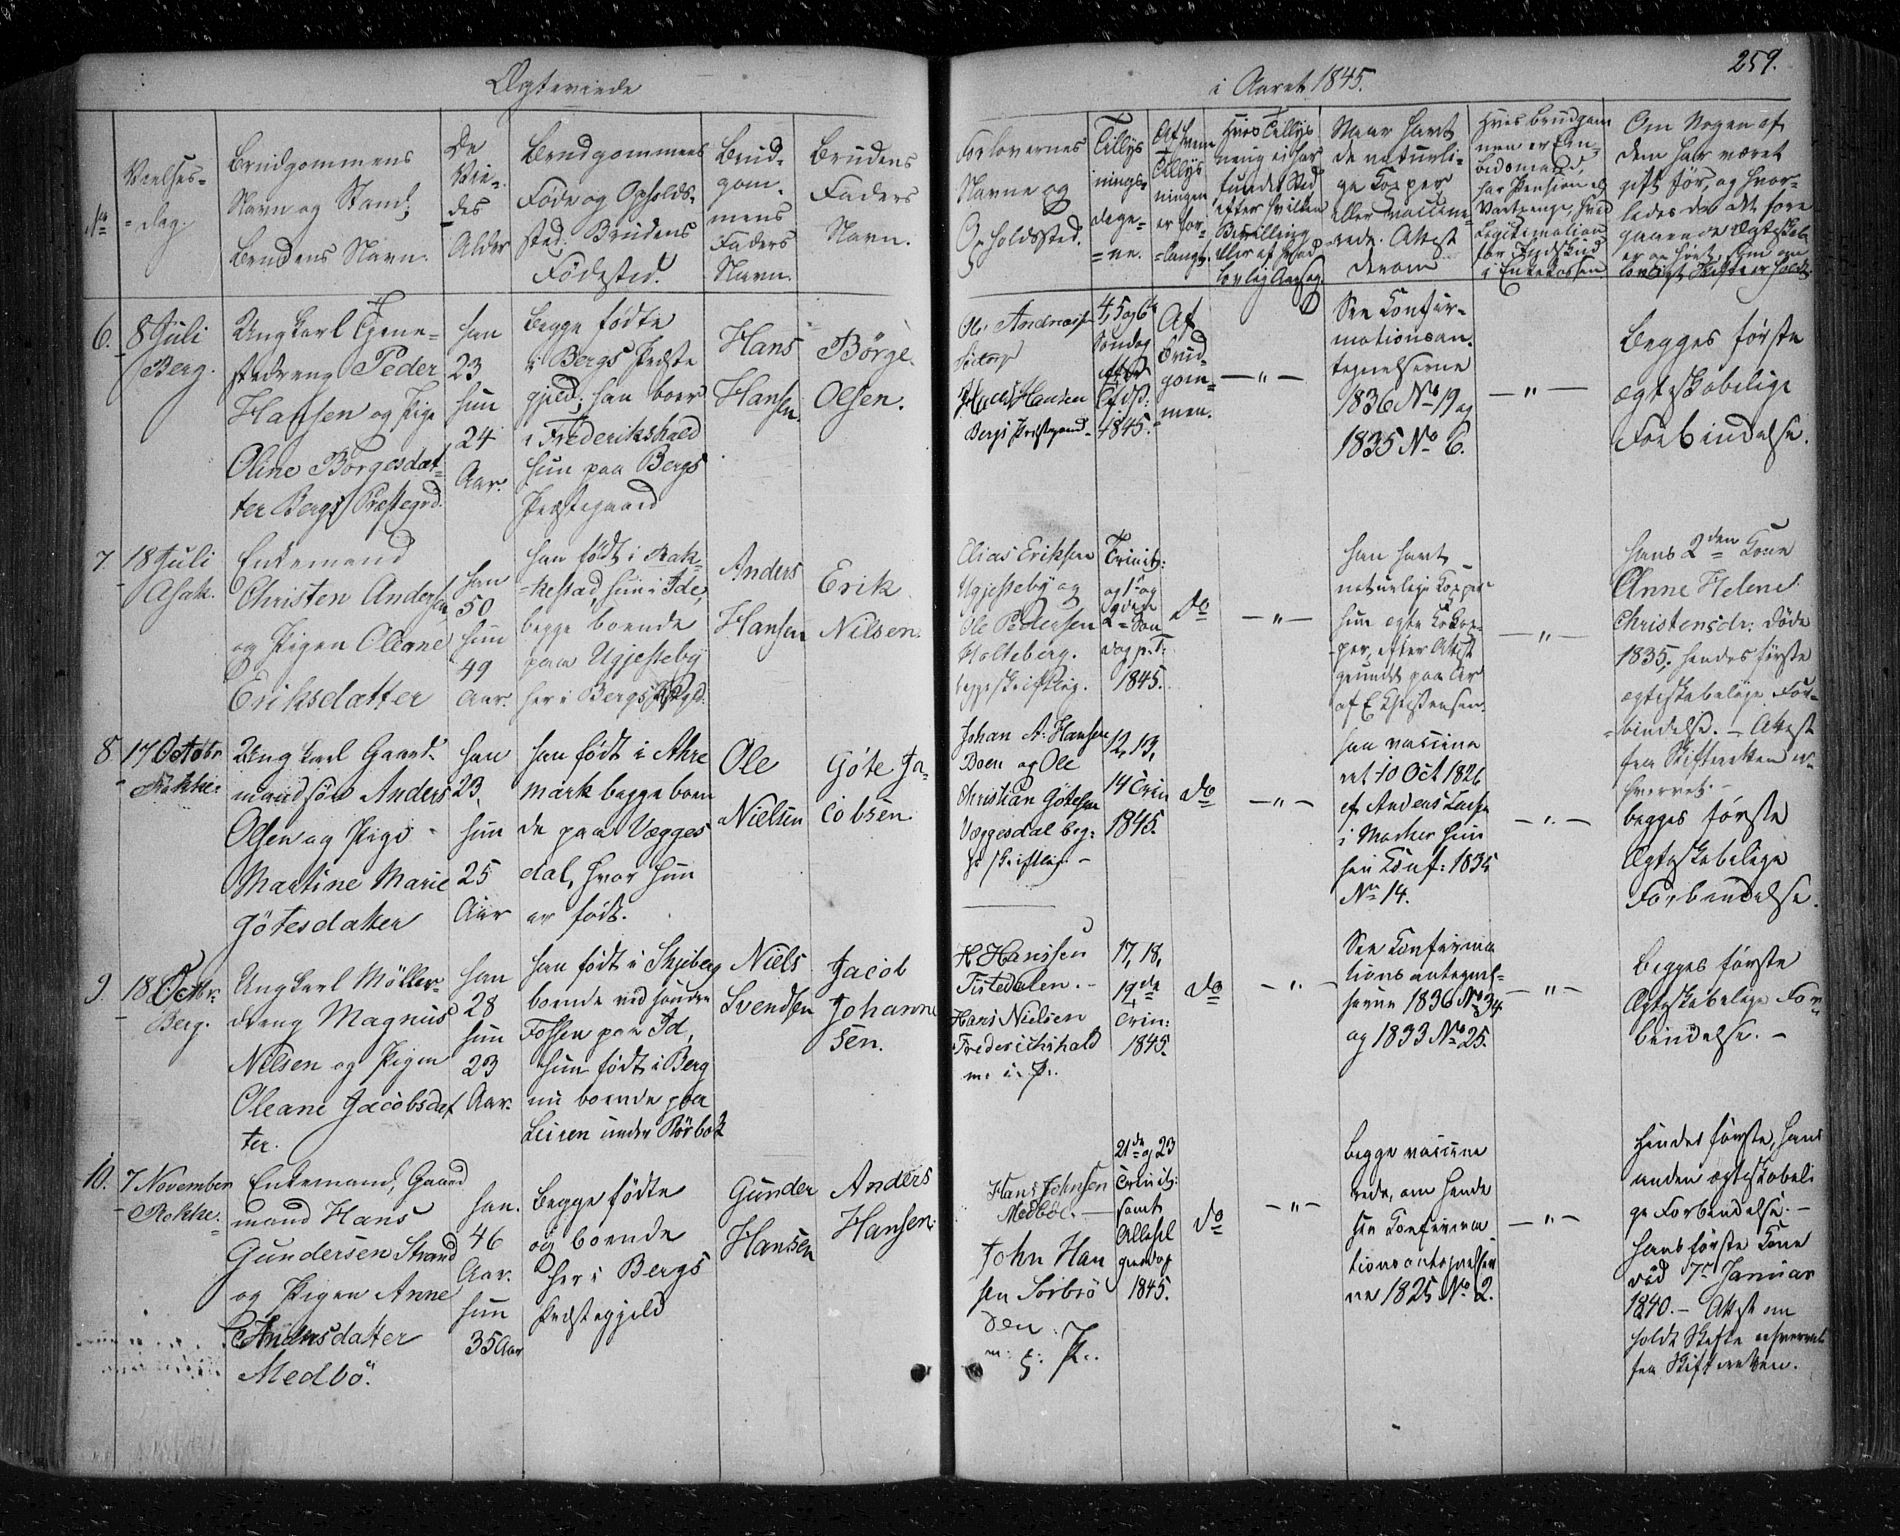 Ægteviede
i Aaret 1845.
259.
No
Vielses-
dag.
Brudgommens
Navn og Stand;
Brudens Navn.
De
Vie-
des
Alder
Brudgommens
Føde og Opholds-
sted. Brudens
Fødested.
Brud-
gom-
mens
Faders
Navn.
Brudens
Faders
Navn.
Forlovernes
Navne og
Opholdssted.
Tillys
nings-
dage-
ne.
Af hvem
Tillys
ningen
er for-
langt.
Hvis Tillys
ning ei har
fundet Sted
efter hvilken
Bevilling
eller
Naar havt
de naturli-
ge Kopper
eller vaccine-
rede. Attest
derom
Hvis Brudgom
men er En-
kemand,
har Pension
Legitimation
for Indskud
i Enkekassen
Om Nogen af
dem har været
gift før, og hvor-
ledes det fore
gaaende Ægteskab
er
6.
8 Juli
Berg.
Ungkarl Tjene-
stedreng Peder
Hansen og Pige
Oline Børgesdat-
ter Bergs Præstegrd.
han
23
hun
24
Aar.
begge fødte
i Bergs Præste
gjeld; han boer
i Frederikshald
hun paa Bergs
Præstegaard
Hans
Hansen.
Børge
Olsen.
Andreas
Hansen
Bergs Præstegaard
4, 5 og 6te
Søndag
efter
1845.
Af
Brud-
gom-
men.
— " —
See Confir-
mationsan-
tegnelserne
1836 No 19 og
1835 No 6.
— " —
Begges første
ægteskabelige
Forbindelse.
7.
18 Juli
Asak.
Enkemand
Christen Andersen
og Pigen Oleane
Eriksdatter
han
50
hun
49
Aar.
han født i Rak-
kestad, hun i Ide,
begge boende
paa Ugjesteby
her i Bergs
Anders
Hansen
Erik
Nilsen.
Elias Eriksen
Ugjesteby og
Ole Pedersen
Holteberg.
begge skriftlig.
Trinit:
og 1ste og
2den Søn
dag p. T.
1845.
do
— " —
han havt
naturlige Kopper
hun ægte Kokop-
per, efter Attest
grundet paa Ar
af E. Christensen.
— " —
hans 2den Kone
Anne Helene
Christensdr: døde
1835; hendes første
ægteskabelige For-
bindelse. – Attest
fra Skifteretten er-
hvervet. –
8
17 Octobr
Rokke.
Ungkarl Gaard-
mandsøn Anders
Olsen og Pige
Martine Marie
Götesdatter
han
23,
hun
25
Aar
han født i Akre
mark begge boen
de paa Vægges
dal, hvor hun
er født.
Ole
Nielsen
Göte Ja-
cobsen
Johan A. Hansen
Boen og Ole
Christian Götesen
Væggesdal beg:
ge skriftlig. –
12, 13,
14 Trin
1845.
do
— " —
han vaccine
ret 10 Oct 1826
af Anders
i Marker hun
see Conf: 1835
No 14.
— " —
begges første
Ægteskabelige
Forbindelse.
9.
18 Octbr:
Berg.
Ungkarl Möller-
dreng Magnus
Nilsen og Pigen
Oleane Jacobsdat
ter.
han
28
hun
23
Aar.
han født i Skjeberg
boende ved søndre
Fossen paa Id,
hun født i Berg
nu boende paa
Leiren under Rörbek
Niels
Svendsen
Jacob
Johanne
sen.
H Hanssen
Tistedalen. –
Hans Nielsen
Frederichshald
m. i. P.
17, 18,
19de
Trin:
1845.
do
— " —
See Confirma
tionsantegnel-
serne 1836 No 34
og 1833 No 25.
— " —
Begges første
Ægteskabelige For
bindelse. –
10.
7 November
Rokke.
Enkemand, Gaard
mand Hans
Gundersen Strand
og Pigen Anne
Andersdatter
Medbö.
han.
46
Aar.
hun
35 Aar
begge fødte
og boende
her i Bergs
Præstegjeld
Gunder
Hansen
Anders
Hansen.
Hans Johnsen
Medböe. —
John Han
sen Sörbrö
den.
m: i: P..
21de og 23
Trinit:
samt
Allehel
gensdag
1845.
do
— " —
begge vaccine
rede, om hende
see Confirma
tionsantegnelser
ne 1825 No 2.
— " —
Hendes første, hans
anden ægteskabeli
ge Forbindelse. –
hans første Kone
död 7de Januar
1840. – Attest om
holdt Skifte erhvervet
fra Skifteretten.